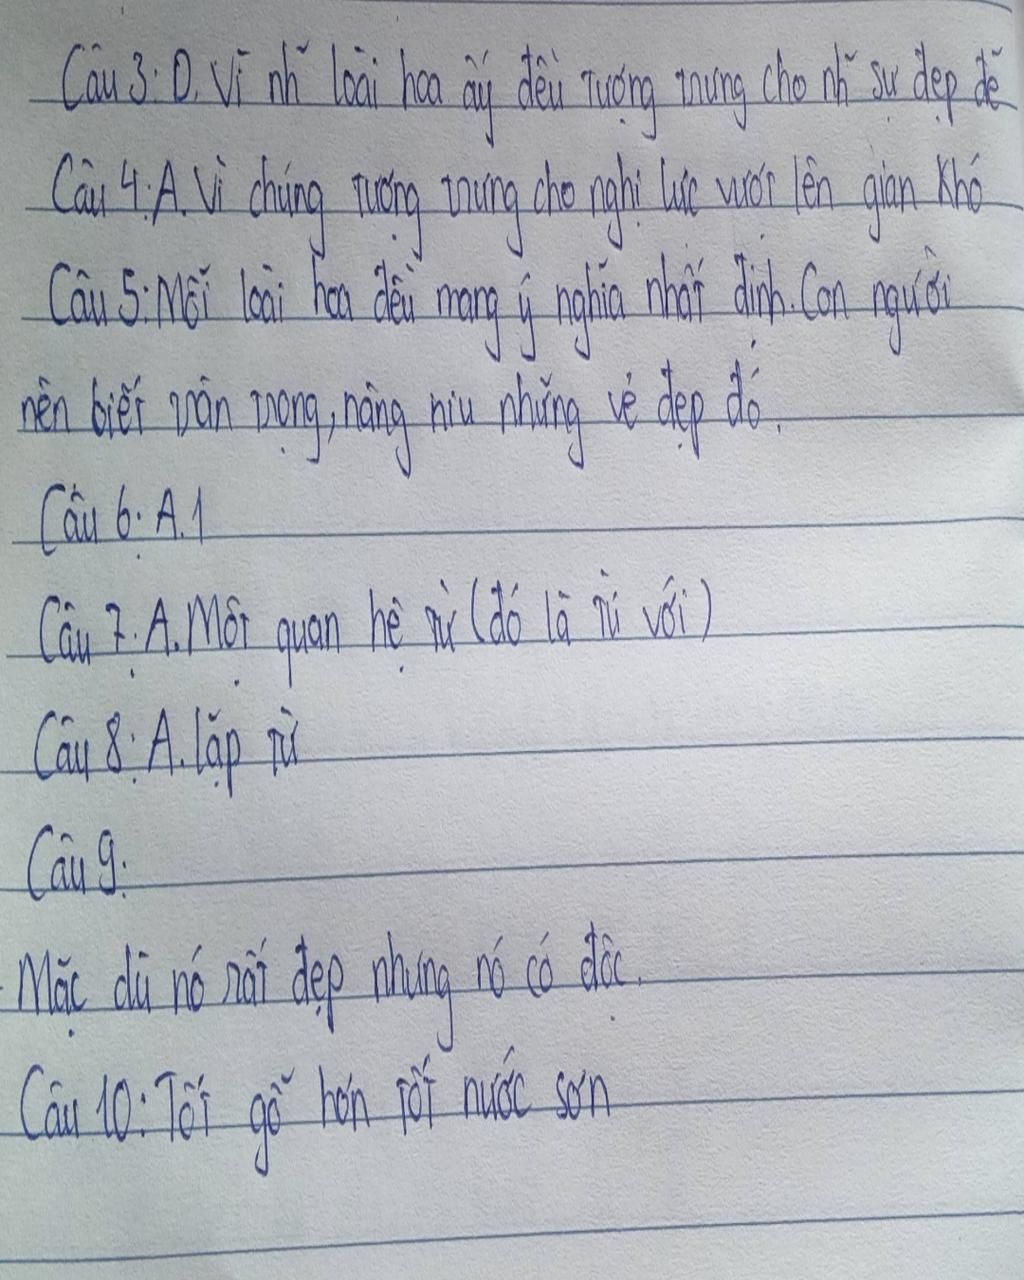 Câu 3: D. Vì nh~ loài hoa ấy đều tượng trưng cho nh~ sự đẹp đẽ
Câu 4: A. Vì chúng tượng trưng cho nghị lực vượt lên gian khó
Câu 5: Mỗi loài hoa đều mang ý nghĩa nhất định. Con người
nên biết trân trọng, nâng niu những vẻ đẹp đó.
Câu 6: A. 1
Câu 7: A. Một quan hệ từ (đó là từ với)
Câu 8: A. lặp từ
Câu 9:
Mặc dù nó rất đẹp nhưng nó có độc.
Câu 10: Tốt gỗ hơn tốt nước sơn